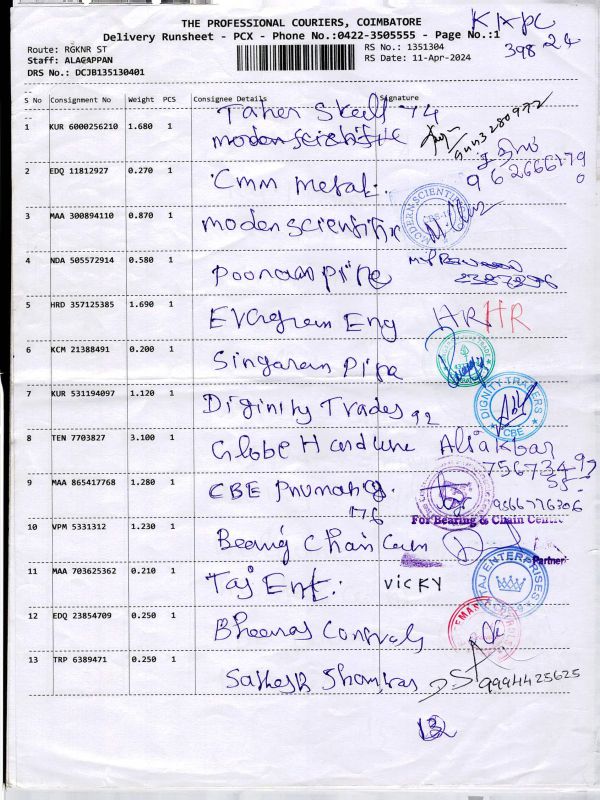 THE PROFESSIONAL COURIERS, COIMBATORE
Delivery Runsheet - PCX - Phone No.:0422-3505555 - Page No.:1
398 24
Route: RGKNR ST RS No.: 1351304
Staff: ALAGAPPAN RS Date: 11-Apr-2024
DRS No.: DCJB135130401
S No Consignment No Weight PCS Consignee Details Signature
1 KUR 6000256210 1.680 1 74
2 EDQ 11812927 0.270 1 Cmm metal.
3 MAA 300894110 0.870 1 moden scientific
MODERN SCIENTIFIC
4 NDA 505572914 0.580 1 Poonam pipe
5 HRD 357125385 1.690 1 Evergreen Eng HR HR
6 KCM 21388491 0.200 1 Singaram Pipa
7 KUR 531194097 1.120 1 Diginity Trades 92
DIGNITY TRADERS
CBE
8 TEN 7703827 3.100 1 Globe Hardwre Aliakbar
756734
9 MAA 865417768 1.280 1 CBE Pnumatics. 9566776306
176
For Bearing & Chain Centre
10 VPM 5331312 1.230 1 Bearing Chain Cen
Partner
11 MAA 703625362 0.210 1 Taj Ent. VICKY
TAJ ENTERPRISES
12 EDQ 23854709 0.250 1 Bheemas Controls
13 TRP 6389471 0.250 1 Sathesh Shankar 9994425625
13